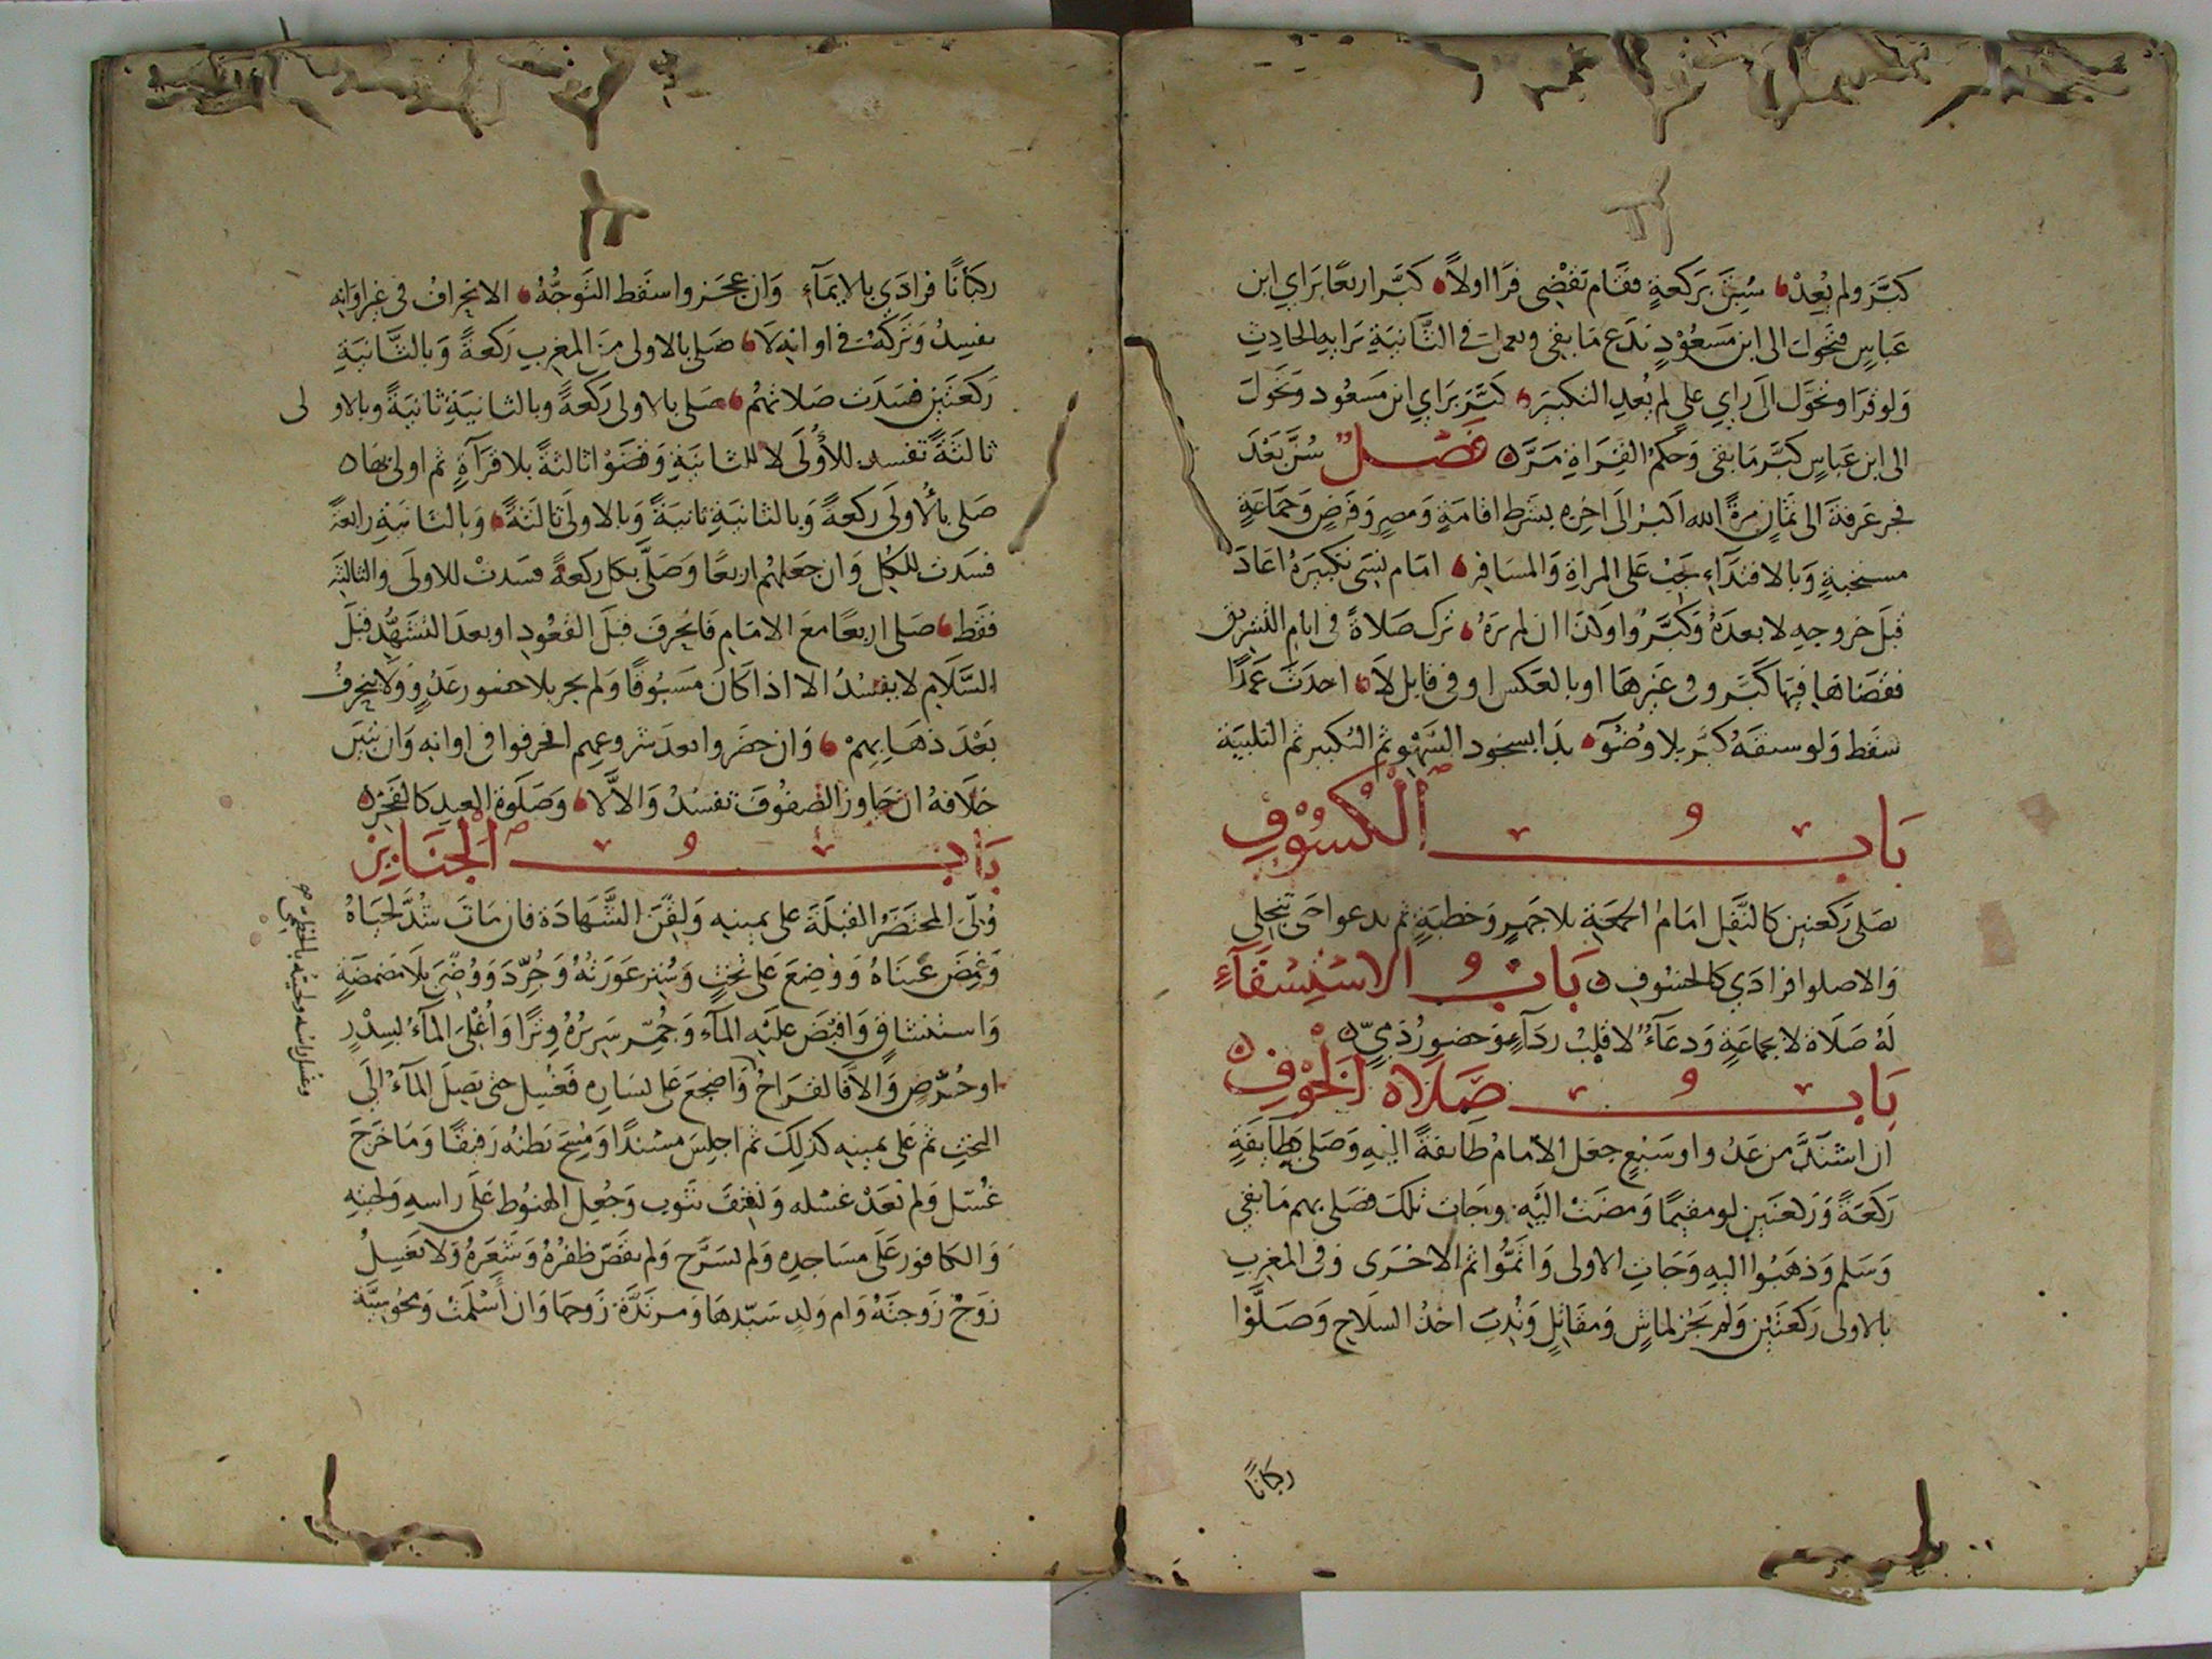 كبَّرَ ولم يُعِدْ، سُبِقَ بركعةٍ فقام يَقْضِي قرَأ اولاً، كبَّر اربعًا بِرَاي ابن
عَباسٍ فتحول الى ابن مَسعُوْدٍ يَدَع مَا بقى ويعمل في الثَّانيَةِ برَايهِ الحادِثِ
وَلو قرَأ وتحَوَّل الَى رايِ علي لم يُعِدِ التكبيَر، كبَّرَ بَرايِ ابن مَسعُود وتحَوَلَ
الى ابن عَباسٍ كبَّر مَا بقى وَحكمُ القِرَاةِ مَرَّ ه فَصْلٌ سُنَّ بَعْدَ
فجر عَرفةَ الى ثمَانٍ مرةً الله اكبرُ الَى اخِرِه بشرطِ اقامَةٍ وَمصرٍ وَفرضٍ وَجمَاعَةٍ
مستحبةٍ وَبالاقتدَآءِ يجَبُ عَلى المراةِ وَالمسَافِرِ، امَام نَسِى تكبيَرهُ اعَادَ
قبلَ خروجهِ لا بعدَهُ وَكبَّرُوا وكذَا ان لم يرَهُ، ترك صَلاةً في ايام التشريق
فقضَاهَا فيهَا كبَّر وفي غَيرهَا اوبالعَكس او في قابل لاَ، احدَثَ عَمدًا
سقط وَلو سبقَهُ كبَّر بلا وُضُوَء، بدَا بسجود السَّهْوثم التكبير ثم التلبيَة
بَابُ الْكُسُوْفِ
يصَلي رَكعتين كالنَّفلِ امَامُ الجمعَةِ بلا جَهرٍ وَخطبَةٍ ثم يدعوا حَتى تنجلي
وَالا صلوا فرَادَي كالخسُوفِ ه بَابُ الاسْتِسْقَآءِ
لهُ صَلَاة لا بجمَاعَةٍ وَدعَآءٌ لا قلبُ ردَآءٍ وَحضورُ ذمِيّ ه
بَابُ صَلَاة الْخَوْفِ ه
ان اشتَدَّ من عَدُو او سَبُعٍ جعَل الامَامُ طايفةً اليهِ وَصَلى بطايفَةٍ
رَكعَةً وَرَكعتَينِ لو مقيمًا وَمضَتْ اليْهِ وجَات تلكَ فصَلى بهم مَا بقي
وَسَلم وَذهَبُوا اليهِ وَجَاتِ الاولى وَاتمُّوا ثم الاخْرَى وفي المغربِ
بالاولى رَكعَتَيْنِ وَلم يَجُز لمَاشٍ وَمقَاتِلٍ وَنُدِبَ اخذُ السِلاحِ وَصَلَّوْا
ركبانًا
ركبَانًا فرادَي بالايمَآءِ وَان عجَزوا سقَط التوَجُّهُ، الانحِرافُ في غير اوَانِه
يفسِدُ وَتركُهُ في اوانهِ لَا، صَلى بالاولى مَن المغربِ رَكعةً وَبالثَّانيَةِ
رَكعَتَيْنِ فسَدَت صَلاتهُم، صَلى بالاولى رَكعةً وبالثانيَةِ ثانيَةً وبالاولى
ثالثَةً تفسد للأُوْلَى لا للثانيَةِ وَقضَوْا ثالثةً بلا قرَآةٍ ثم اولى بهَا ه
صَلى بالأُولَى رَكعةً وَبالثانيَةِ ثانيَةً وَبالاولَى ثالثَةً، وَبالثانيَةِ رابعَةً
فسَدَت للكلِ وَان جعَلهُم اربعًا وَصَلَّى بكلٍ ركعةً فسَدتْ للاولَى وَالثالثَةِ
فقَط، صَلى اربعًا معَ الامَامِ فانحَرفَ قبلَ القعُودِ اوبعدَ التشَهُّدِ قبلَ
السَّلَامِ لا يفسُدُ الا اذا كَانَ مَسبُوقًا وَلم يجز بلا حضور عَدُوٍ وَلا ينحرفُ
بَعْدَ ذهَابِهِمْ، وَان حضَروا بعدَ شروعِهم انحرفوا في اوانهِ وَان تبَيَن
خلَافهُ ان جَاوزَ الصفُوفَ تفسُدُ وَالالَا، وَصَلَوة العيدِ كالفَجْرِ ه
بَابُ الْجَنَايِز
وُلّىَ المحتضَرُ القبلَةَ على يمينهِ وَلُقِّنَ الشَّهَادَة فان مَاتَ شُدَّ لحيَاهُ
وَغمِضَ عَينَاهُ وَوُضِعَ عَلى تختٍ وَسُتِر عَورَتُهُ وَجُرِّدَ وَوُضّئَ بلَا مَضمضَةٍ
وَاستنشاقٍ وَافيْضَ عَليْهِ المآءُ وَجُمِّر سَرِيرُهُ وترًا وَأُغْلىَ المآءُ بسِدْرٍ
او حُرْضٍ وَالا فالقرَاحُ وَاضجعَ عَلى يسَارهِ فغُسِل حتى يَصِلَ المآءُ الَى
التختِ ثم عَلى يمينهِ كذلِكَ ثم اجلِسَ مسنَدًا وَمُسِحَ بَطنُه رَفيقًا وَمَا خرَجَ
غُسّل وَلم يُعَدْ غسْله وَنُشِّفَ بثوب وَجُعِل الحنوُط عَلَى راسهِ وَلحيتهِ
وَالكَافور عَلَى مسَاجدهِ وَلم يُسَرَّح وَلم يقَصّ ظفرُهُ وَشعَرهُ وَلا يَغسِلُ
زوْجٌ زَوجتَهُ وَام وَلدٍ سَيّدهَا وَمرتَدَّة زَوجهَا وَان أَسْلمَتْ وَمجُوسِيَّة
وغسل راسه ولحيته بالخطمي صح